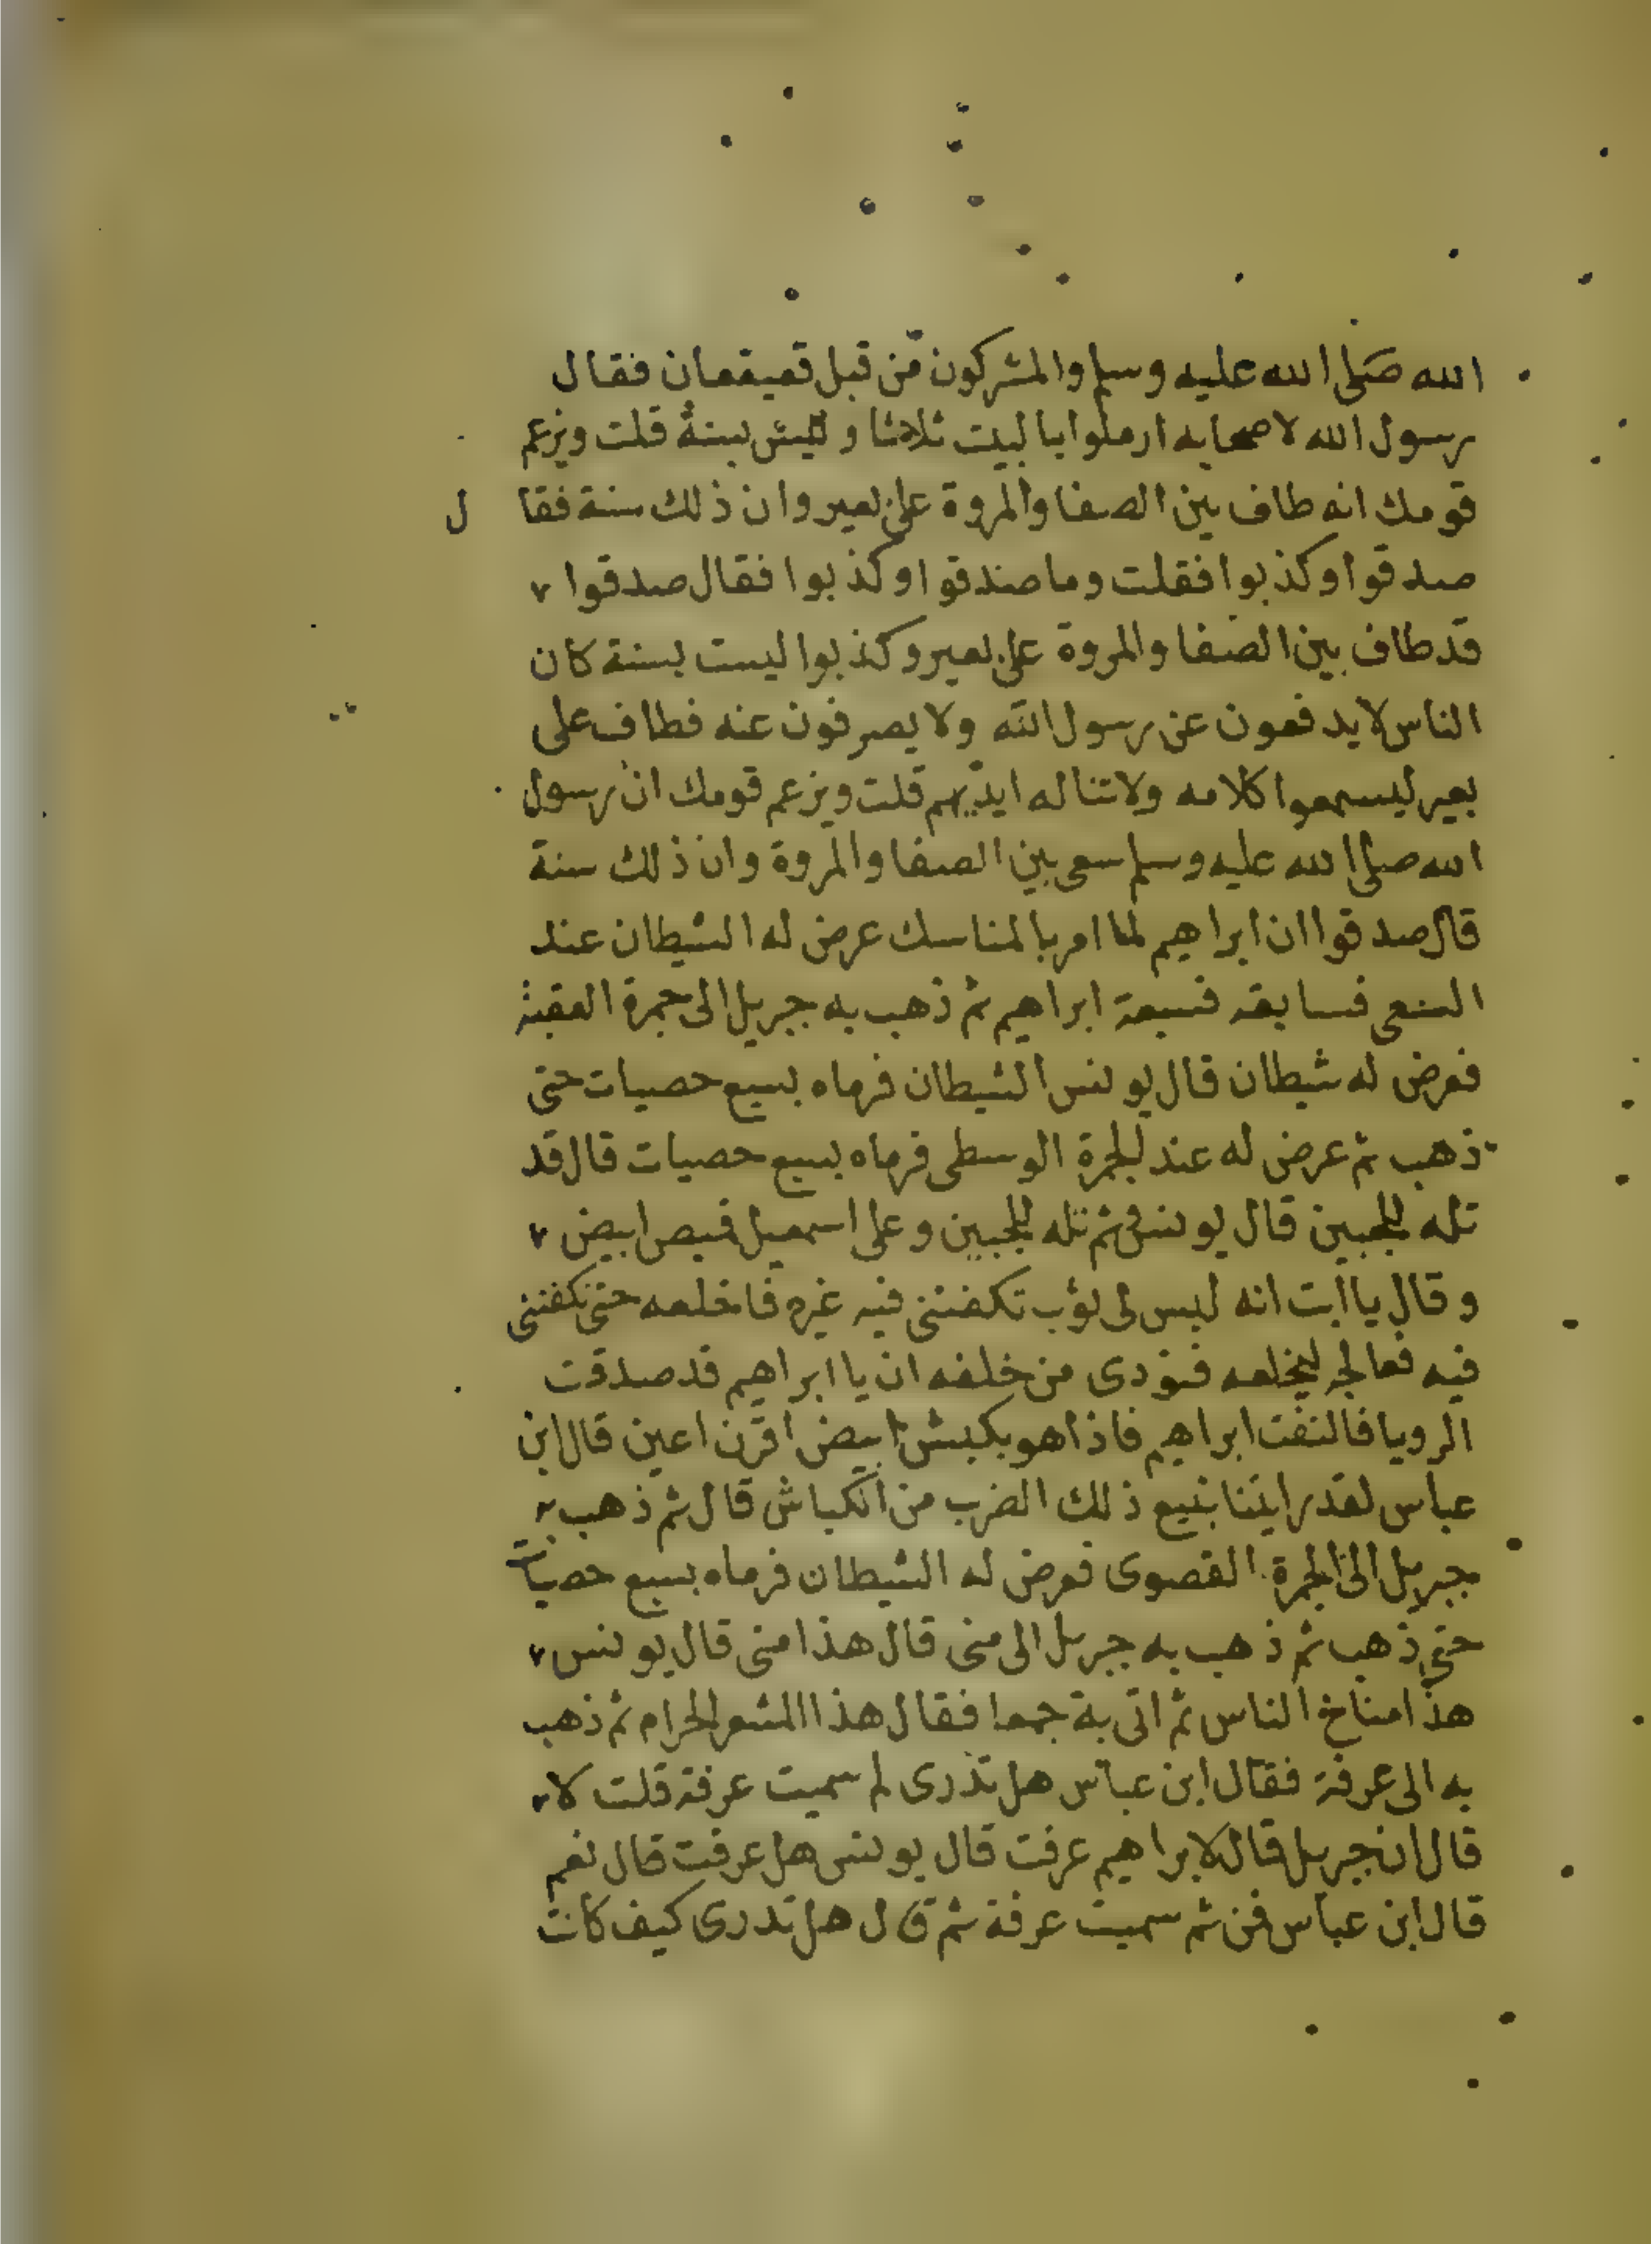 الله صلى الله عليه وسلم والمشركون من قبل قعيقعان فقال
رسول الله لاصحابه ارملوا بالبيت ثلاثا وليس بسنة قلت ويزعم
قومك انه طاف بين الصفا والمروة على بعير وان ذلك سنة فقال
صدقوا وكذبوا فقلت وما صدقوا وكذبوا فقال صدقوا
قد طاف بين الصفا والمروة على بعير وكذبوا ليست بسنة كان
الناس لا يدفعون عن رسول الله ولا يصرفون عنه فطاف على
بعير ليسمعوا كلامه ولا تناله ايديهم قلت ويزعم قومك ان رسول
الله صلى الله عليه وسلم سعى بين الصفا والمروة وان ذلك سنة
قال صدقوا ان ابراهيم لما امر بالمناسك عرض له الشيطان عند
المسعى فسابقه فسبقه ابراهيم ثم ذهب به جبريل الى جمرة العقبة
فعرض له شيطان قال يونس الشيطان فرماه بسبع حصيات حتى
ذهب ثم عرض له عند الجمرة الوسطى فرماه بسبع حصيات قال قد
تله للجبين قال يونس وثم تله للجبين وعلى اسمعيل قميص ابيض
وقال يا ابت انه ليس لى ثوب تكفننى فيه غيره فاخلعه حتى تكفننى
فيه فعالجه ليخلعه فنودى من خلفه ان يا ابراهيم قد صدقت
الرويا فالتفت ابراهيم فاذا هو بكبش ابيض اقرن اعين قال ابن
عباس لقد رايتنا نبيع ذلك الضرب من الكباش قال ثم ذهب به
جبريل الى الجمرة القصوى فعرض له الشيطان فرماه بسبع حصيات
حتى ذهب ثم ذهب به جبريل الى منى قال هذا منى قال يونس
هذا مناخ الناس ثم اتى به جمعا فقال هذا المشعر الحرام ثم ذهب
به الى عرفة فقال ابن عباس هل تدرى لم سميت عرفة قلت لا
قال ان جبريل قال لابراهيم عرفت قال يونس هل عرفت قال نعم
قال ابن عباس فمن ثم سميت عرفة ثم قال هل تدرى كيف كانت